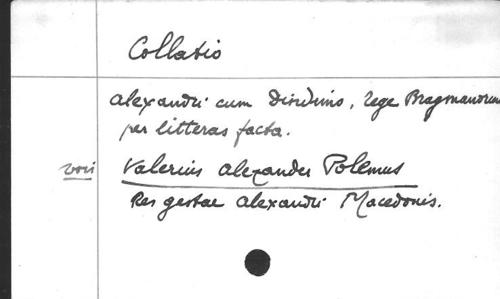 Collatio
Alexandri cum Dindimo, rege Bragmanorum
per litteras facta.
voir Valerius Alexander Polemus
Res gestae Alexandri Macedonis.